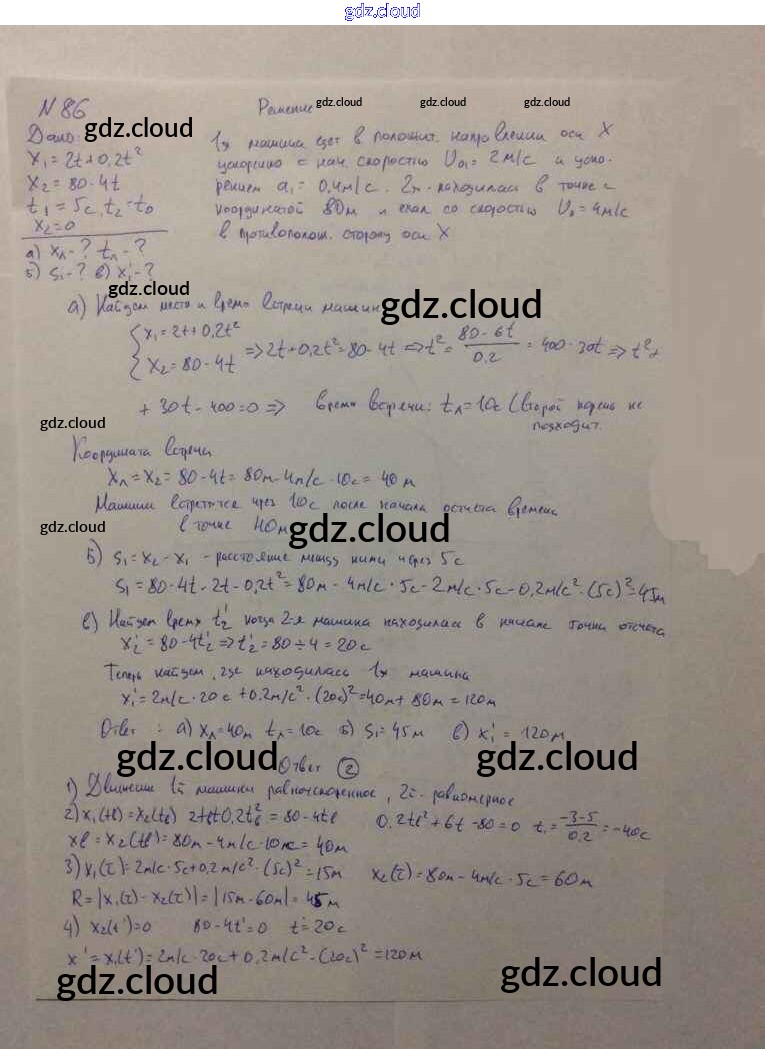 gdz.cloud
N 86
Решение gdz.cloud gdz.cloud gdz.cloud
Дано: gdz.cloud
x₁ = 2t + 0,2t²
x₂ = 80 - 4t
t₁ = 5с, t₂ = t₀
x₂ = 0
а) xл - ? tл - ?
б) S₁ - ? в) x₁' - ?
1я машина едет в положит. направлении оси X
ускоренно с нач. скоростью U₀₁ = 2 м/с и уско-
рением a₁ = 0,4 м/с. 2я - находилась в точке с
координатой 80м и ехал со скоростью U₀ = 4м/с
в противополож. сторону оси X
gdz.cloud
а) Найдем место и время встречи машин gdz.cloud
{ x₁ = 2t + 0,2t²
x₂ = 80 - 4t => 2t + 0,2t² = 80 - 4t => t² = (80 - 6t)/0,2 = 400 - 30t => t² +
+ 30t - 400 = 0 => время встречи: tл = 10с (второй корень не
подходит.
gdz.cloud
Координата встречи
xл = x₂ = 80 - 4t = 80м - 4м/с · 10с = 40 м
Машины встретятся через 10с после начала отсчета времени
в точке 40м
gdz.cloud gdz.cloud
б) S₁ = x₂ - x₁ - расстояние между ними через 5с
S₁ = 80 - 4t - 2t - 0,2t² = 80м - 4м/с · 5с - 2м/с · 5с - 0,2м/с² · (5с)² = 45м
в) Найдем время t₂' когда 2-я машина находилась в начале точки отсчета
x₂' = 80 - 4t₂' => t₂' = 80 ÷ 4 = 20с
Теперь найдем, где находилась 1я машина
x₁' = 2м/с · 20с + 0,2м/с² · (20с)² = 40м + 80м = 120м
Ответ: а) xл = 40м tл = 10с б) S₁ = 45м в) x₁' = 120м
gdz.cloud gdz.cloud
Ответ (2)
1) Движение 1й машины равноускоренное, 2й - равномерное
2) x₁(tв) = x₂(tв) 2tв + 0,2tв² = 80 - 4tв 0,2tв² + 6t - 80 = 0 t₁ = (-3-5)/0,2 = -40с
xв = x₂(tв) = 80м - 4м/с · 10с = 40м
3) x₁(τ) = 2м/с · 5с + 0,2м/с² · (5с)² = 15м x₂(τ) = 80м - 4м/с · 5с = 60м
R = |x₁(τ) - x₂(τ)| = |15м - 60м| = 45м
4) x₂(t') = 0 80 - 4t' = 0 t = 20с
x' = x₁(t') = 2м/с · 20с + 0,2м/с² · (20с)² = 120м
gdz.cloud gdz.cloud